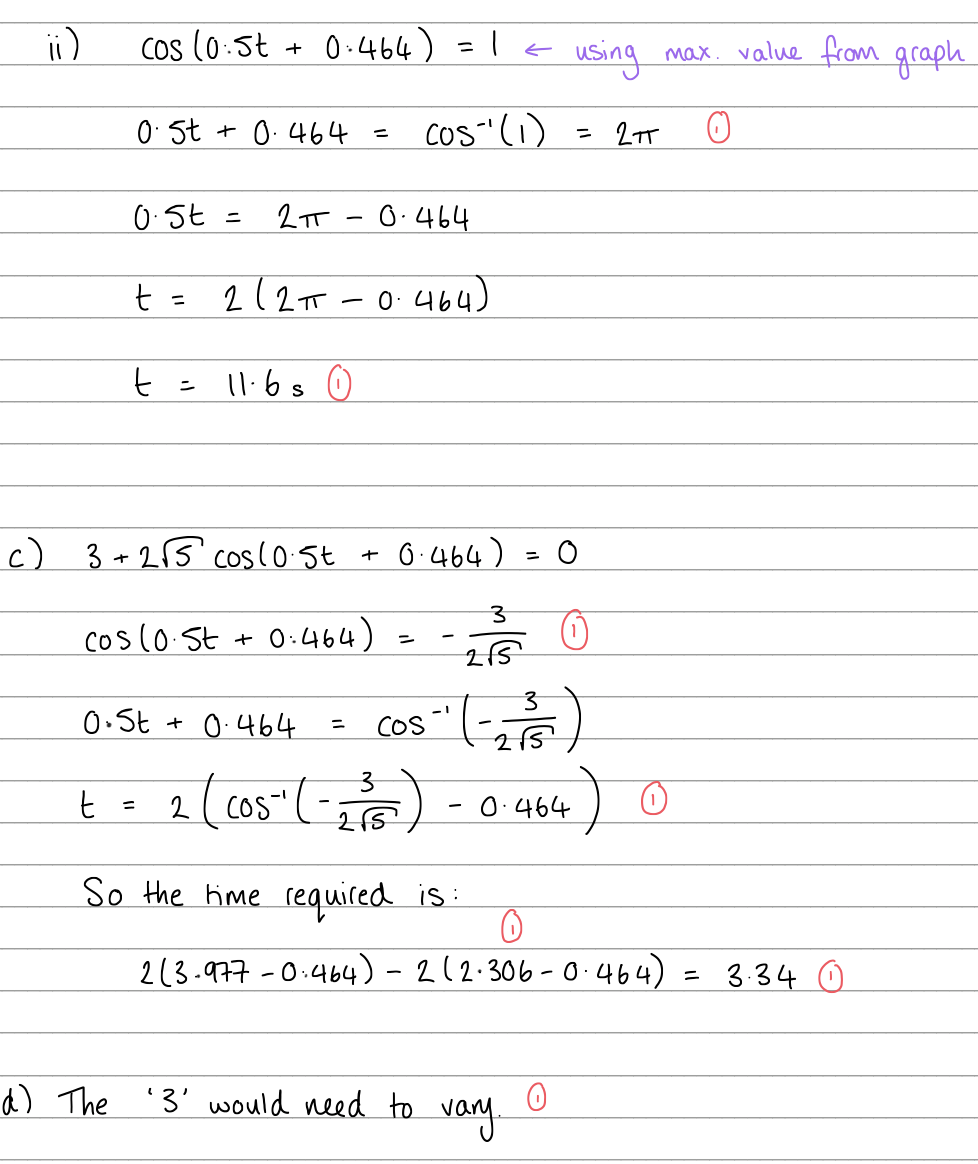 ii) cos(0.5t + 0.464) = 1 ← using max. value from graph
0.5t + 0.464 = cos⁻¹(1) = 2π ①
0.5t = 2π − 0.464
t = 2(2π − 0.464)
t = 11.6 s ①
c) 3 + 2√5 cos(0.5t + 0.464) = 0
cos(0.5t + 0.464) = −3/(2√5) ①
0.5t + 0.464 = cos⁻¹(−3/(2√5))
t = 2(cos⁻¹(−3/(2√5)) − 0.464) ①
So the time required is:
①
2(3.977 − 0.464) − 2(2.306 − 0.464) = 3.34 ①
d) The '3' would need to vary. ①